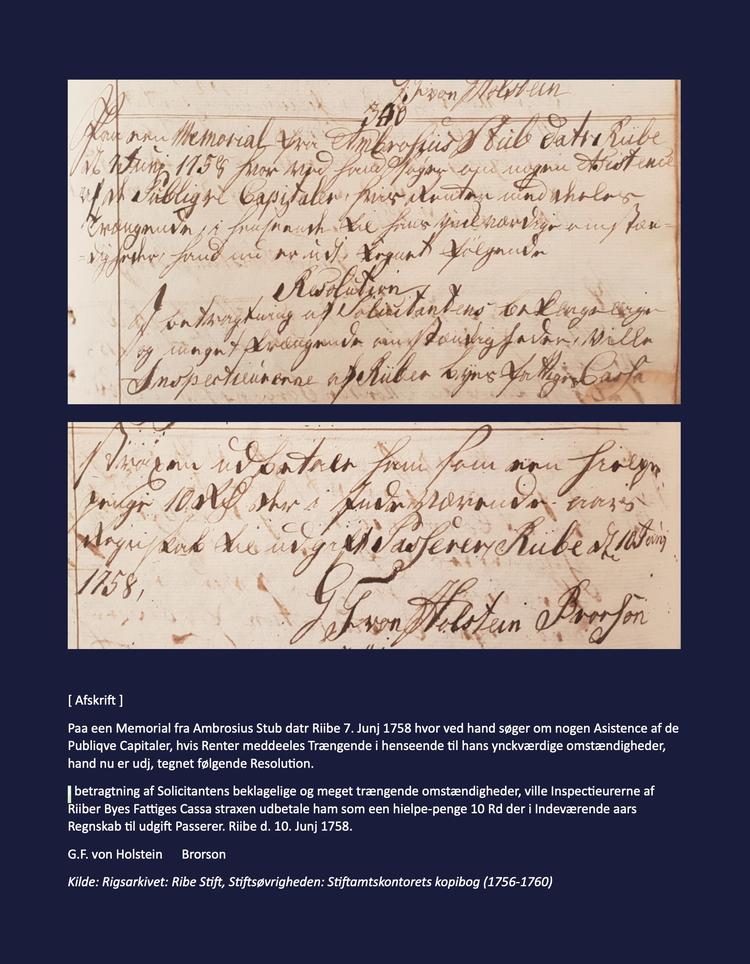 G.F. von Holstein
340
Paa een Memorial fra Ambrosius Stub datr: Riibe
d. 7 Junj 1758 hvor ved hand søger om nogen Asistence
af de Publiqve Capitaler, hvis Renter meddeeles
Trængende, i henseende til hans ynckværdige omstæn-
digheder, hand nu er udj, tegnet følgende
Resolution
I betragtning af Solicitantens beklagelige
og meget trængende omstændigheder, Ville
Inspectieurerne af Riiber Byes Fattiges Cassa
straxen udbetale ham som een hielpe-
penge 10 Rd der i Indeværende aars
Regnskab til udgift Passerer, Riibe d. 10 Junj
1758,
G F von Holstein Brorson
[ Afskrift ]
Paa een Memorial fra Ambrosius Stub datr Riibe 7. Junj 1758 hvor ved hand søger om nogen Asistence af de
Publiqve Capitaler, hvis Renter meddeeles Trængende i henseende til hans ynckværdige omstændigheder,
hand nu er udj, tegnet følgende Resolution.
I betragtning af Solicitantens beklagelige og meget trængende omstændigheder, ville Inspectieurerne af
Riiber Byes Fattiges Cassa straxen udbetale ham som een hielpe-penge 10 Rd der i Indeværende aars
Regnskab til udgift Passerer. Riibe d. 10. Junj 1758.
G.F. von Holstein Brorson
Kilde: Rigsarkivet: Ribe Stift, Stiftsøvrigheden: Stiftamtskontorets kopibog (1756-1760)